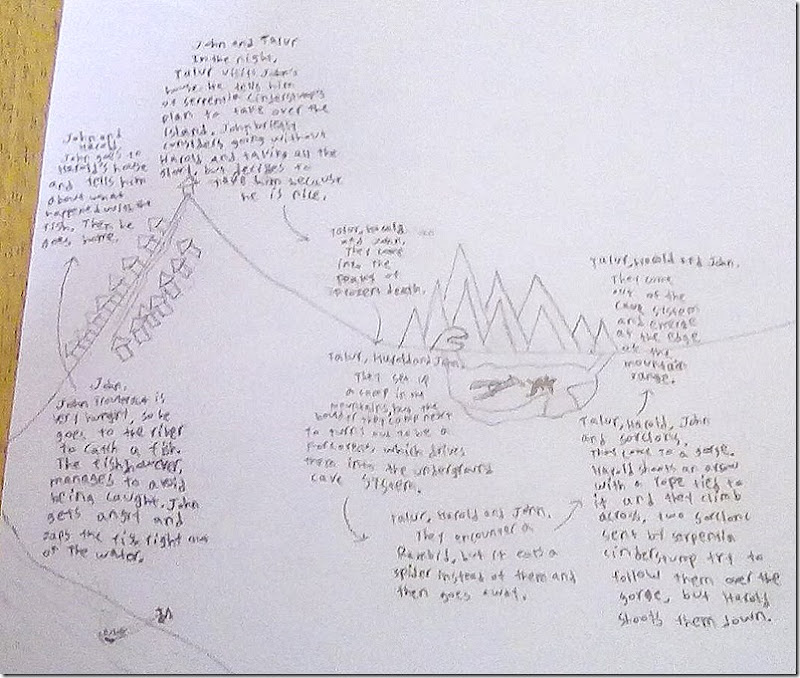 John.
John              is
very hungry, so he
goes to the river
to catch a fish.
The fish, however,
manages to avoid
being caught. John
gets angry and
zaps the fish right out
of the water.
John and
Harold.
John goes to
Harold's house
and tells him
about what
happened with the
fish. Then he
goes home.
John and Talur
In the night,
Talur visits John's
house. He tells him
of serpentia cinderstump's
plan to take over the
Island. John briefly
considers going without
Harold and taking all the
glory, but decides to
take him because
he is nice.
Talur, Harold
and John.
They come
into the
peaks of
frozen death.
Talur, Harold and John.
They set up
a camp in the
mountains, but the
boulder they camp next
to turns out to be a
        which drives
them into the underground
cave system.
Talur, Harold and John.
They encounter a
       but it eats a
spider instead of them and
then goes away.
Talur, Harold, John
and
They come to a gorge.
Harold shoots an arrow
with a rope tied to
it and they climb
across, two
sent by serpentia
cinderstump try to
follow them over the
gorge, but Harold
shoots them down.
Talur, Harold and John.
They come
out of the
cave system
and emerge
at the edge
of the
mountain
range.